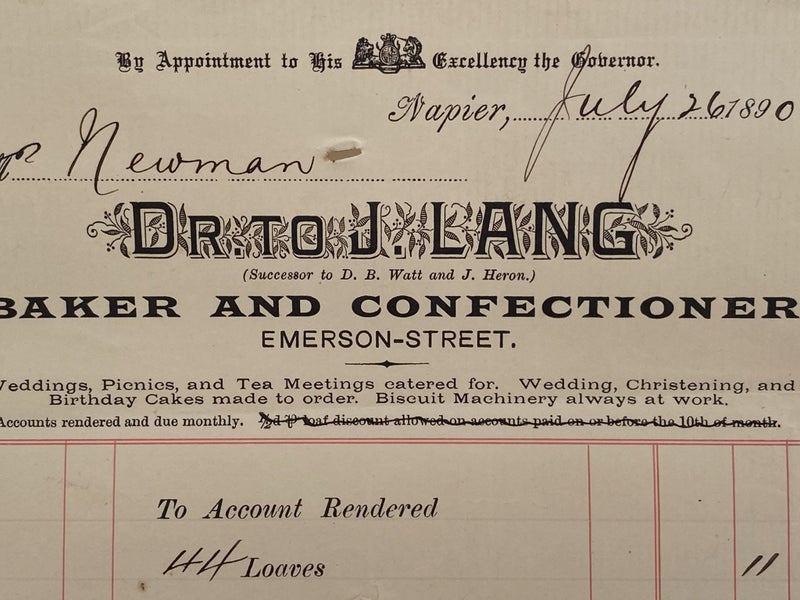 By Appointment to His Excellency the Governor.
Napier, July 26 1890
Mr Newman
DR. TO J. LANG
(Successor to D. B. Watt and J. Heron.)
BAKER AND CONFECTIONER
EMERSON-STREET.
Weddings, Picnics, and Tea Meetings catered for. Wedding, Christening, and
Birthday Cakes made to order. Biscuit Machinery always at work.
Accounts rendered and due monthly. ½d ⅌ loaf discount allowed on accounts paid on or before the 10th of month.
To Account Rendered
44 Loaves 11